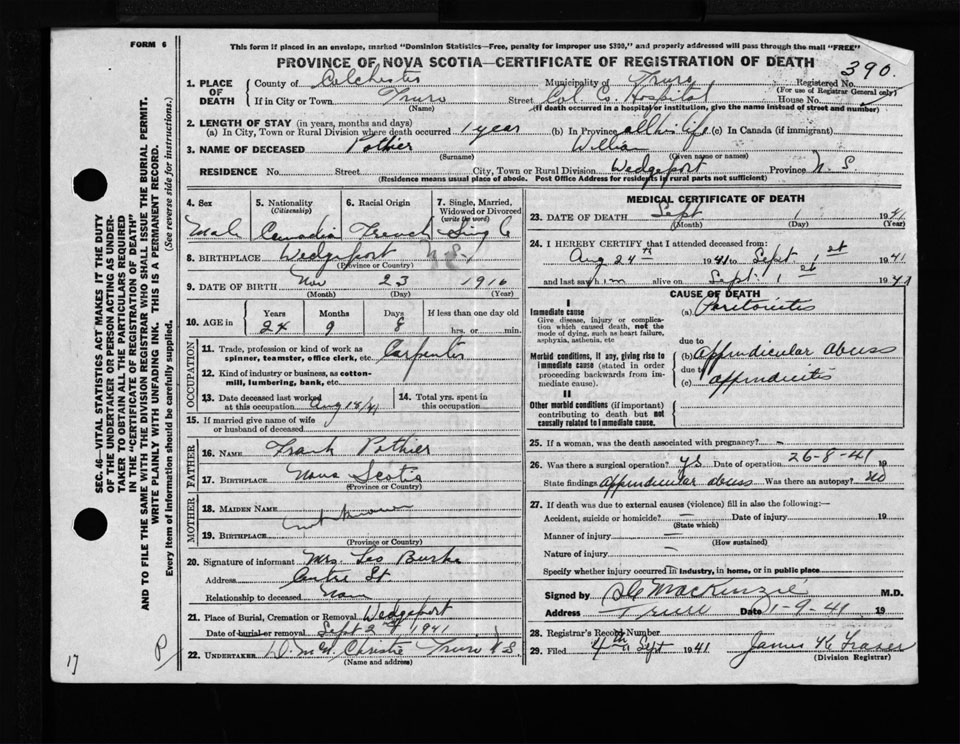 FORM 6
This form if placed in an envelope, marked "Dominion Statistics—Free, penalty for improper use $300," and properly addressed will pass through the mail "FREE"
PROVINCE OF NOVA SCOTIA—CERTIFICATE OF REGISTRATION OF DEATH
390.
1. PLACE OF DEATH County of Colchester Municipality of Truro Registered No.
(For use of Registrar General only)
If in City or Town Truro Street Col Co Hospital House No.
(Name) (If death occurred in a hospital or institution, give the name instead of street and number)
2. LENGTH OF STAY (in years, months and days)
(a) In City, Town or Rural Division where death occurred 1 year (b) In Province all his life (c) In Canada (if immigrant)
3. NAME OF DECEASED Pothier William
(Surname) (Given name or names)
RESIDENCE No. Street City, Town or Rural Division Wedgeport Province N. S.
(Residence means usual place of abode. Post Office Address for residents in rural parts not sufficient)
4. Sex 5. Nationality (Citizenship) 6. Racial Origin 7. Single, Married, Widowed or Divorced (write the word)
Male Canadian French Single
8. BIRTHPLACE Wedgeport N S.
(Province or Country)
9. DATE OF BIRTH Nov 23 1916
(Month) (Day) (Year)
10. AGE in Years Months Days If less than one day
24 9 8 hrs. or min.
OCCUPATION
11. Trade, profession or kind of work as spinner, teamster, office clerk, etc. Carpenter
12. Kind of industry or business, as cotton-mill, lumbering, bank, etc.
13. Date deceased last worked at this occupation Aug 18/41 14. Total yrs. spent in this occupation
15. If married give name of wife or husband of deceased
FATHER
16. NAME Frank Pothier
17. BIRTHPLACE Nova Scotia
(Province or Country)
MOTHER
18. MAIDEN NAME
unknown
19. BIRTHPLACE
(Province or Country)
20. Signature of informant Mrs. Leo Burke
Address Centre St
Relationship to deceased
21. Place of Burial, Cremation or Removal Wedgeport
Date of burial or removal Sept 2 1941
22. UNDERTAKER Christie Truro N S
(Name and address)
MEDICAL CERTIFICATE OF DEATH
23. DATE OF DEATH Sept 1 1941
(Month) (Day) (Year)
24. I HEREBY CERTIFY that I attended deceased from:
Aug 24th 1941 to Sept 1st 1941
and last saw him alive on Sept. 1st 1941
CAUSE OF DEATH
I
Immediate cause
Give disease, injury or complication which caused death, not the mode of dying, such as heart failure, asphyxia, asthenia, etc
(a) Peritonitis
due to
Morbid conditions, if any, giving rise to immediate cause (stated in order proceeding backwards from immediate cause).
(b) Appendicular abcess
due to
(c) appendicitis
II
Other morbid conditions (if important) contributing to death but not causally related to immediate cause.
25. If a woman, was the death associated with pregnancy? –
26. Was there a surgical operation? yes Date of operation 26-8-41 19
State findings Appendicular abcess Was there an autopsy? no
27. If death was due to external causes (violence) fill in also the following:—
Accident, suicide or homicide? – Date of injury 19
(State which)
Manner of injury –
(How sustained)
Nature of injury –
Specify whether injury occurred in industry, in home, or in public place
Signed by MacKenzie M.D.
Address Truro Date 1-9-41 19
28. Registrar's Record Number
29. Filed 4th Sept 1941 James K Fraser
(Division Registrar)
SEC. 46—VITAL STATISTICS ACT MAKES IT THE DUTY
OF THE UNDERTAKER OR PERSON ACTING AS UNDER-
TAKER TO OBTAIN ALL THE PARTICULARS REQUIRED
IN THE "CERTIFICATE OF REGISTRATION OF DEATH"
AND TO FILE THE SAME WITH THE DIVISION REGISTRAR WHO SHALL ISSUE THE BURIAL PERMIT.
WRITE PLAINLY WITH UNFADING INK. THIS IS A PERMANENT RECORD.
Every item of Information should be carefully supplied. (See reverse side for instructions.)
17
P